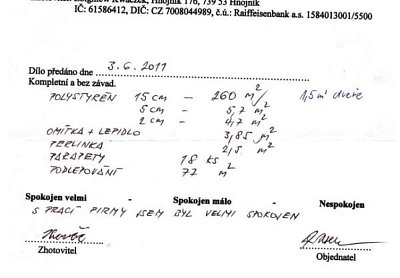 Zbigniew Kwaczek, Hnojník 176, 739 53 Hnojník
IČ: 61586412, DIČ: CZ 7008044989, č.ú.: Raiffeisenbank a.s. 1584013001/5500
Dílo předáno dne 3.6.2011
Kompletní a bez závad.
POLYSTYRÉN 15 cm - 260 m² 1,5 m² dveře
5 cm - 5,7 m²
2 cm - 4,7 m²
OMÍTKA + LEPIDLO 3,85 m²
PERLINKA 2,5 m²
PARAPETY 18 ks
PODLEPOVÁNÍ 72 m²
Spokojen velmi - Spokojen málo - Nespokojen
S PRACÍ FIRMY JSEM BYL VELMI SPOKOJEN
Zhotovitel Objednatel